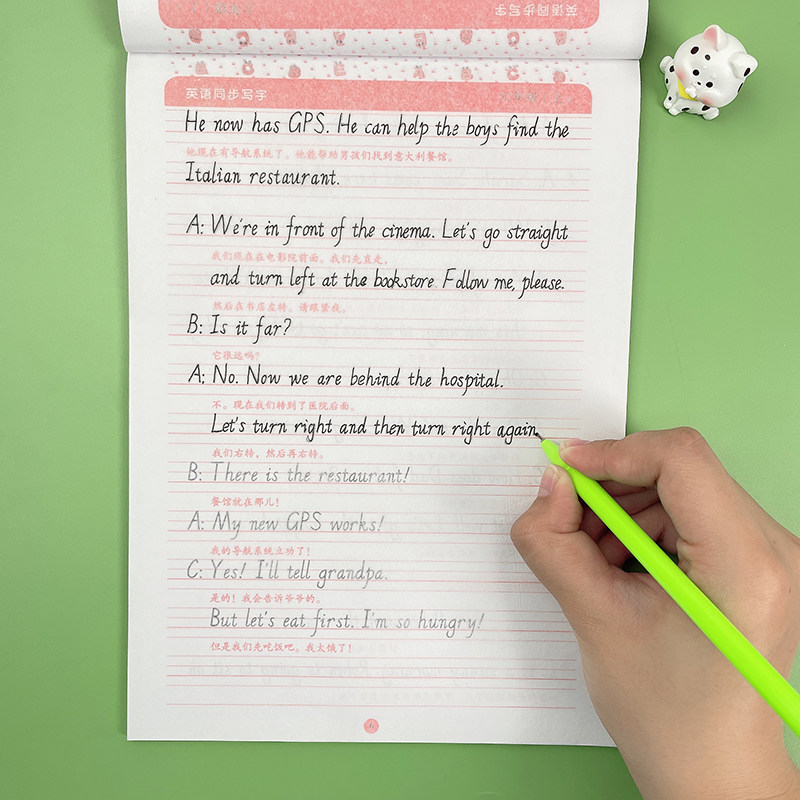 英语同步写字
英语同步写字
He now has GPS. He can help the boys find the
他现在有导航系统了。他能帮助男孩们找到意大利餐馆。
Italian restaurant.
A: We're in front of the cinema. Let's go straight
我们现在在电影院前面。我们先直走,
and turn left at the bookstore. Follow me, please.
然后在书店左转。请跟紧我。
B: Is it far?
它很远吗?
A: No. Now we are behind the hospital.
不。现在我们转到了医院后面。
Let's turn right and then turn right again.
我们右转，然后再右转。
B: There is the restaurant!
餐馆就在那儿!
A: My new GPS works!
我的导航系统立功了!
C: Yes! I'll tell grandpa.
是的! 我会告诉爷爷的。
But let's eat first. I'm so hungry!
但是我们先吃饭吧。我太饿了!